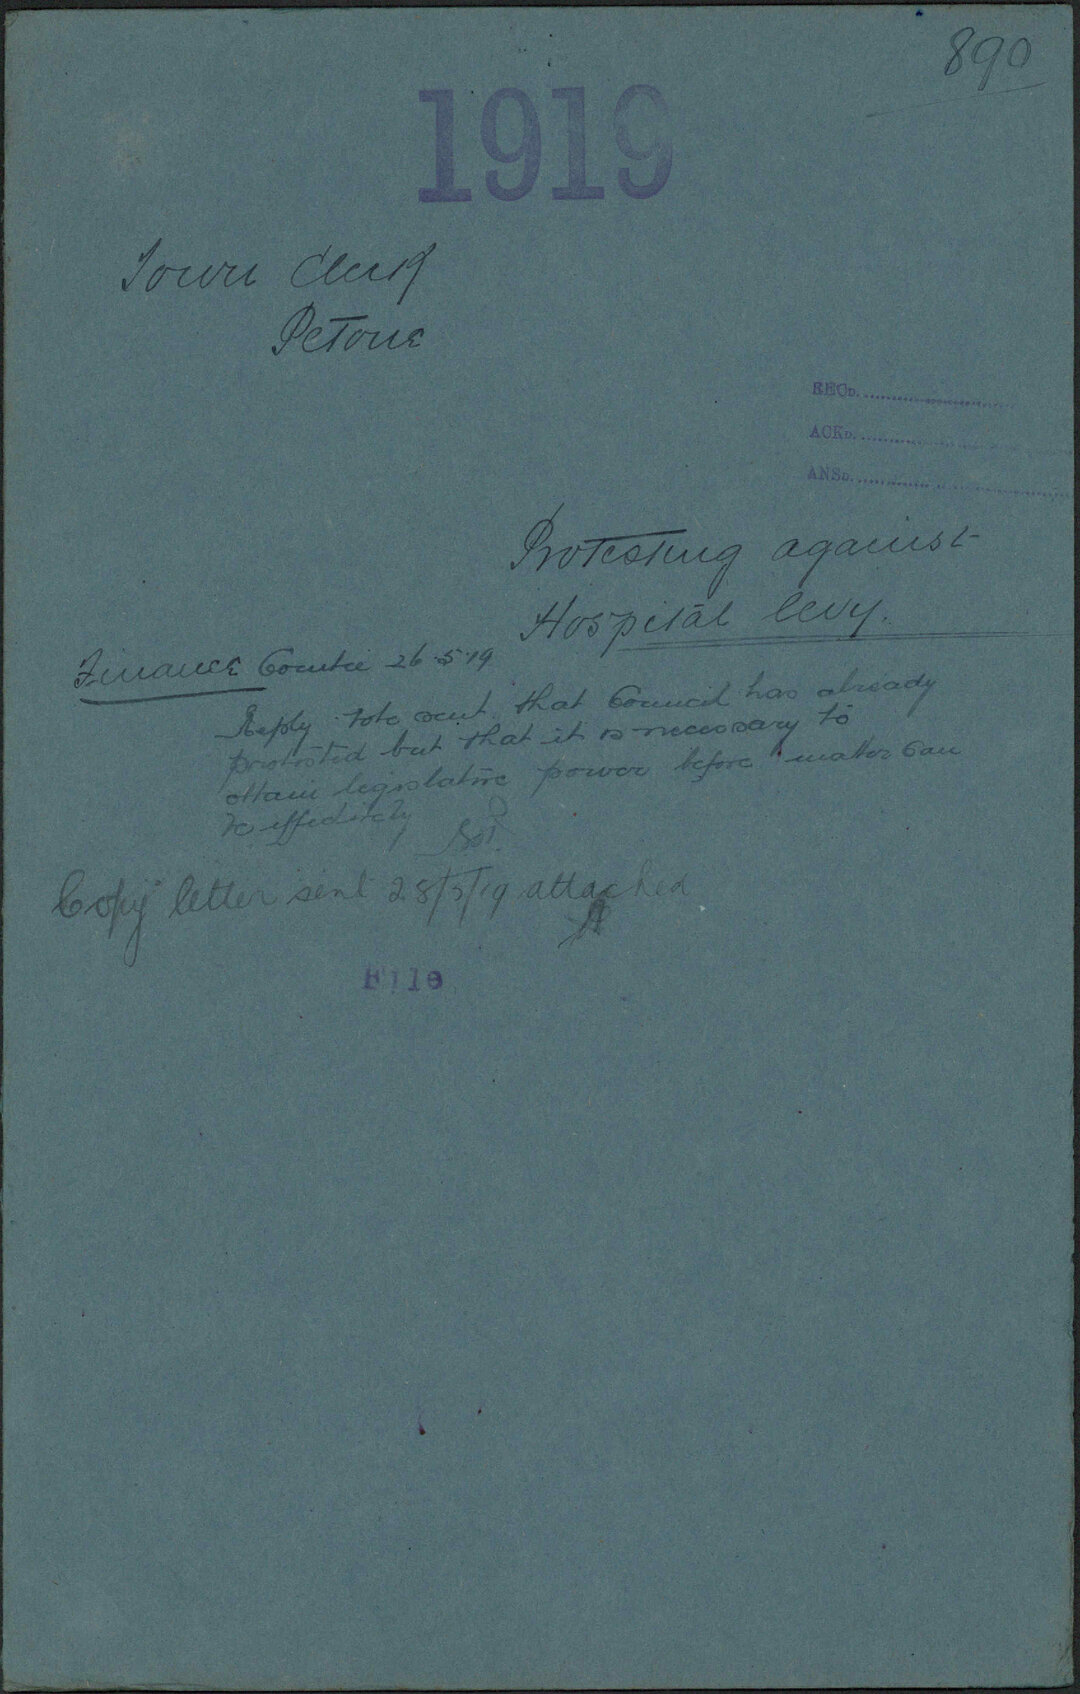 890
1919
Town Clerk
Petone
RECD.
ACKD.
ANSD.
Protesting against
Hospital levy.
Finance Comtee 26.5.19
Reply to be sent that Council has already
protested but that it is necessary to
obtain legislative power before matter can
be effected
Copy letter sent 28/5/19 attached
File